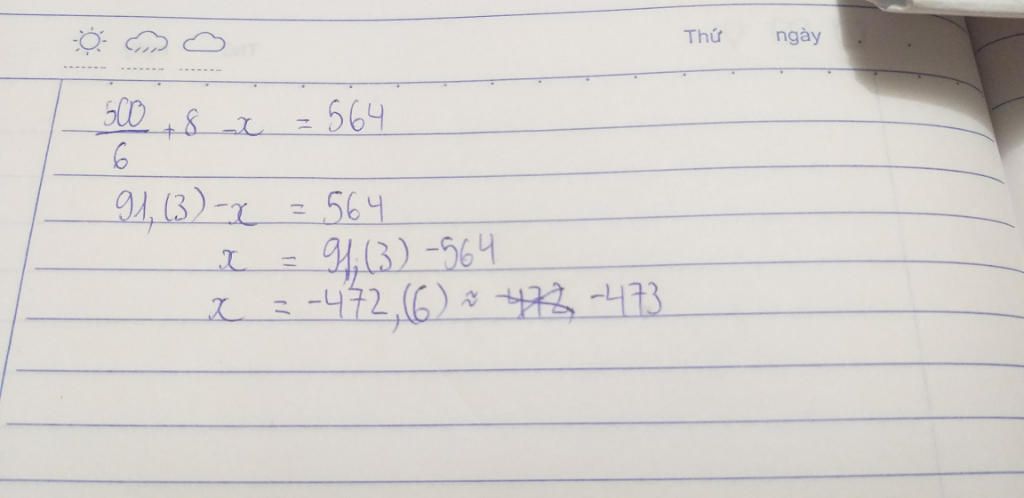 Thứ ngày
500/6 + 8 - x = 564
91,(3) - x = 564
x = 91,(3) - 564
x = -472,(6) ≈ -473